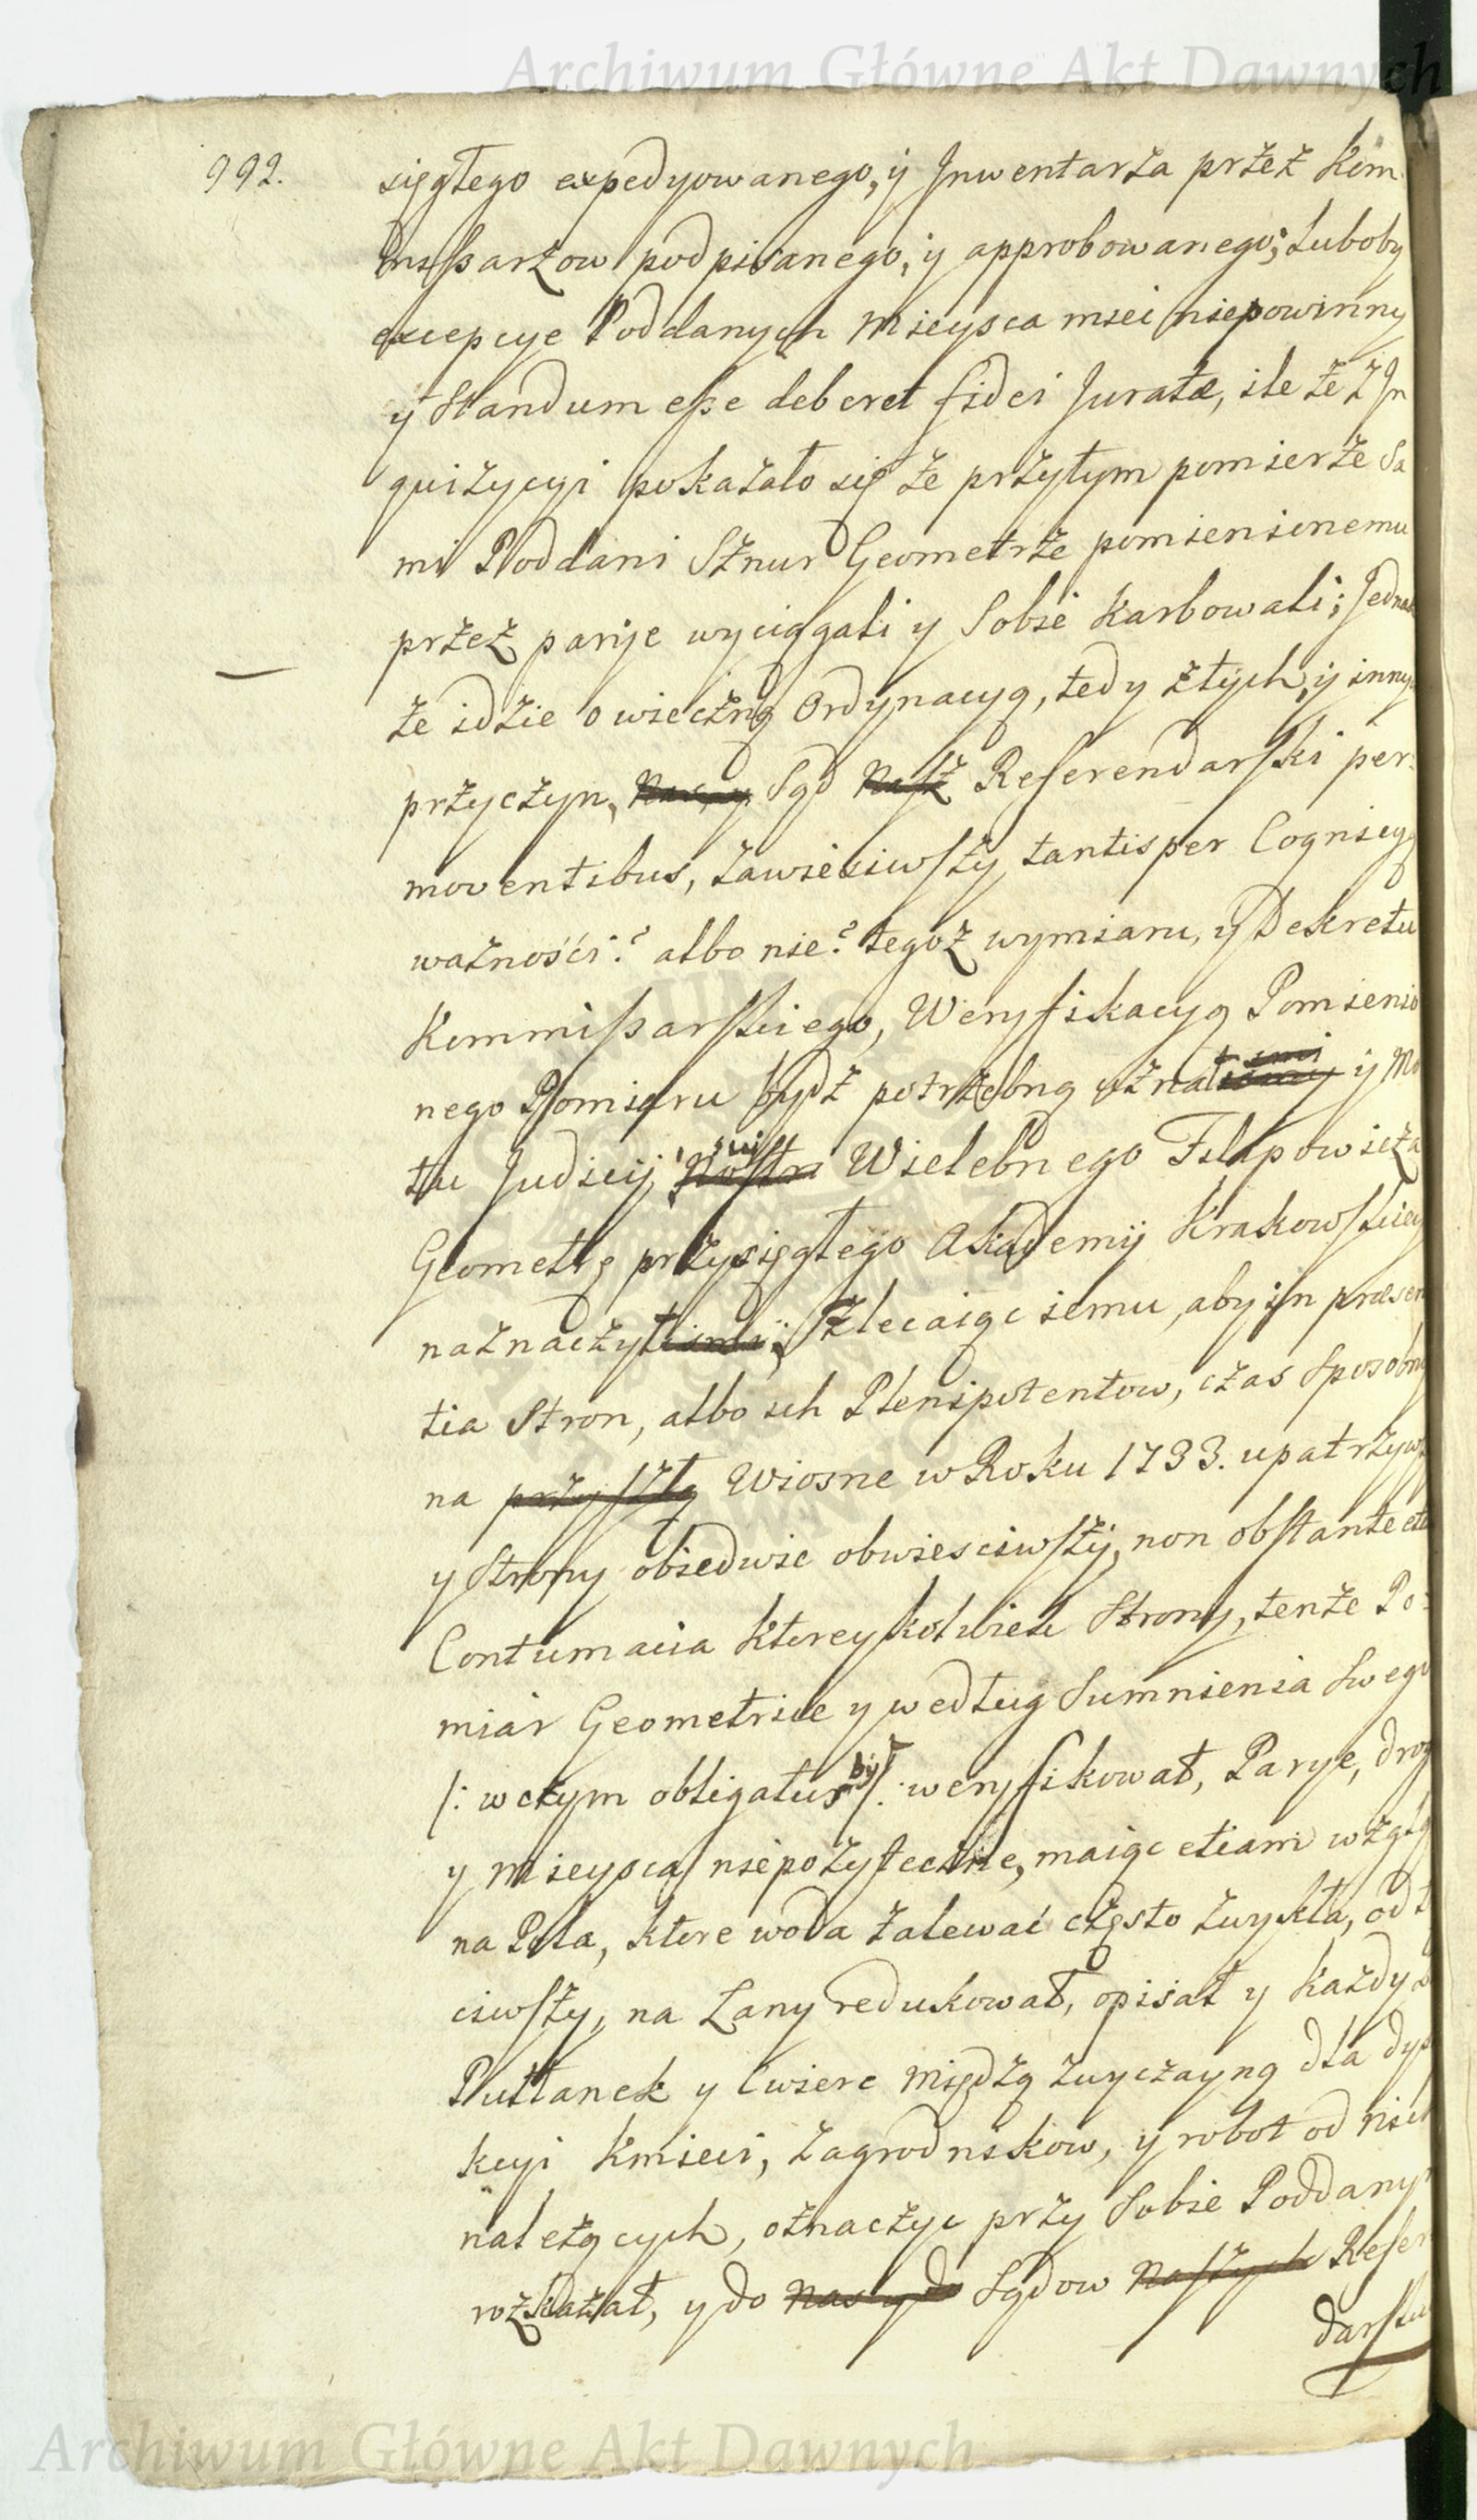 Archiwum Główne Akt Dawnych
992.
sięgłego expedyowanego, ÿ Jnwentarża przeż Kom
mißarżow podpisanego, ÿ approbowanego; luboby
excepcye Poddanych mieysca miec niepowinny
ÿ Standum eße deberet fidei Juratæ, ile że ż Jn
quiżycyi pokażało się że przytym pomierże Sa
mi Poddani Sżnur Geometrże pomienionemu
przeż parije wyciągali y Sobie karbowali; Jednak
że idżie o wiecżną Ordynacyą, tedy żtych, ÿ innych
przycżyn, Sąd Nasż Referendarski per:
moventibus, żawiesiwsży tantisper Cognicyą
ważności? albo nie? tegoż wymiaru, y Dekretu
Kommißarskiego, Weryfikacyą Pomienio
nego Pomiaru bydż potrżebną użnał ÿ Mo
tu Judicij sui Wielebnego Filipowicża
Geometrę przysięgłego Akademÿ Krakowskiey
nażnacżył; Żlecaiąc iemu, aby in præsen
tia Stron, albo ich Plenipotentow, cżas Sposobny
na przysżłą Wiosne w Roku 1793. upatrżyw
y Strony obiedwie obwiesciwsży, non obstante etiam
Contumacia ktoreykolwiek Strony, tenże Po:
miar Geometrice y według Sumnienia Swego
/: w cżym obligatur by :/ weryfikował, Parye, drog
y mieysca niepożytecżne, maiąc etiam wżgląd
na Pola, ktore woda żalewać cżęsto żwykła, odt
ciwsży, na Łany redukował, opisał y każdy
Pułłanek y Cwierc miedżą żwycżayną dla dys
kcyi Kmieci, żagrodnikow, ÿ robot od nich
należących, ożnacżyc przy Sobie Poddanym
rożkażał, y do Sądow Nasżych Refer
darsku
Archiwum Główne Akt Dawnych